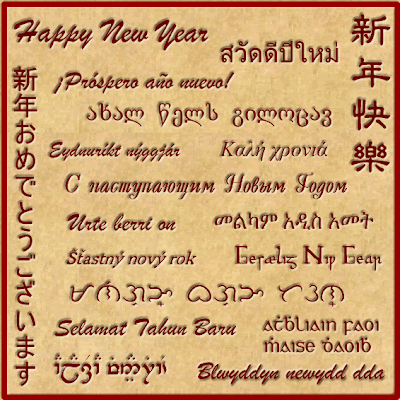 Happy New Year
สวัสดีปีใหม่
新年快樂
新年おめでとうございます
¡Próspero año nuevo!
ახალ წელს გილოცავ
Eydnuríkt nýggjár
Καλή χρονιά
С наступающим Новым Годом
Urte berri on
መልካም አዲስ አመት
Šťastný nový rok
Gesælig Niƿ Gear
Selamat Tahun Baru
aṫḃliain faoi
ṁaise ḋaoiḃ
Blwyddyn newydd dda